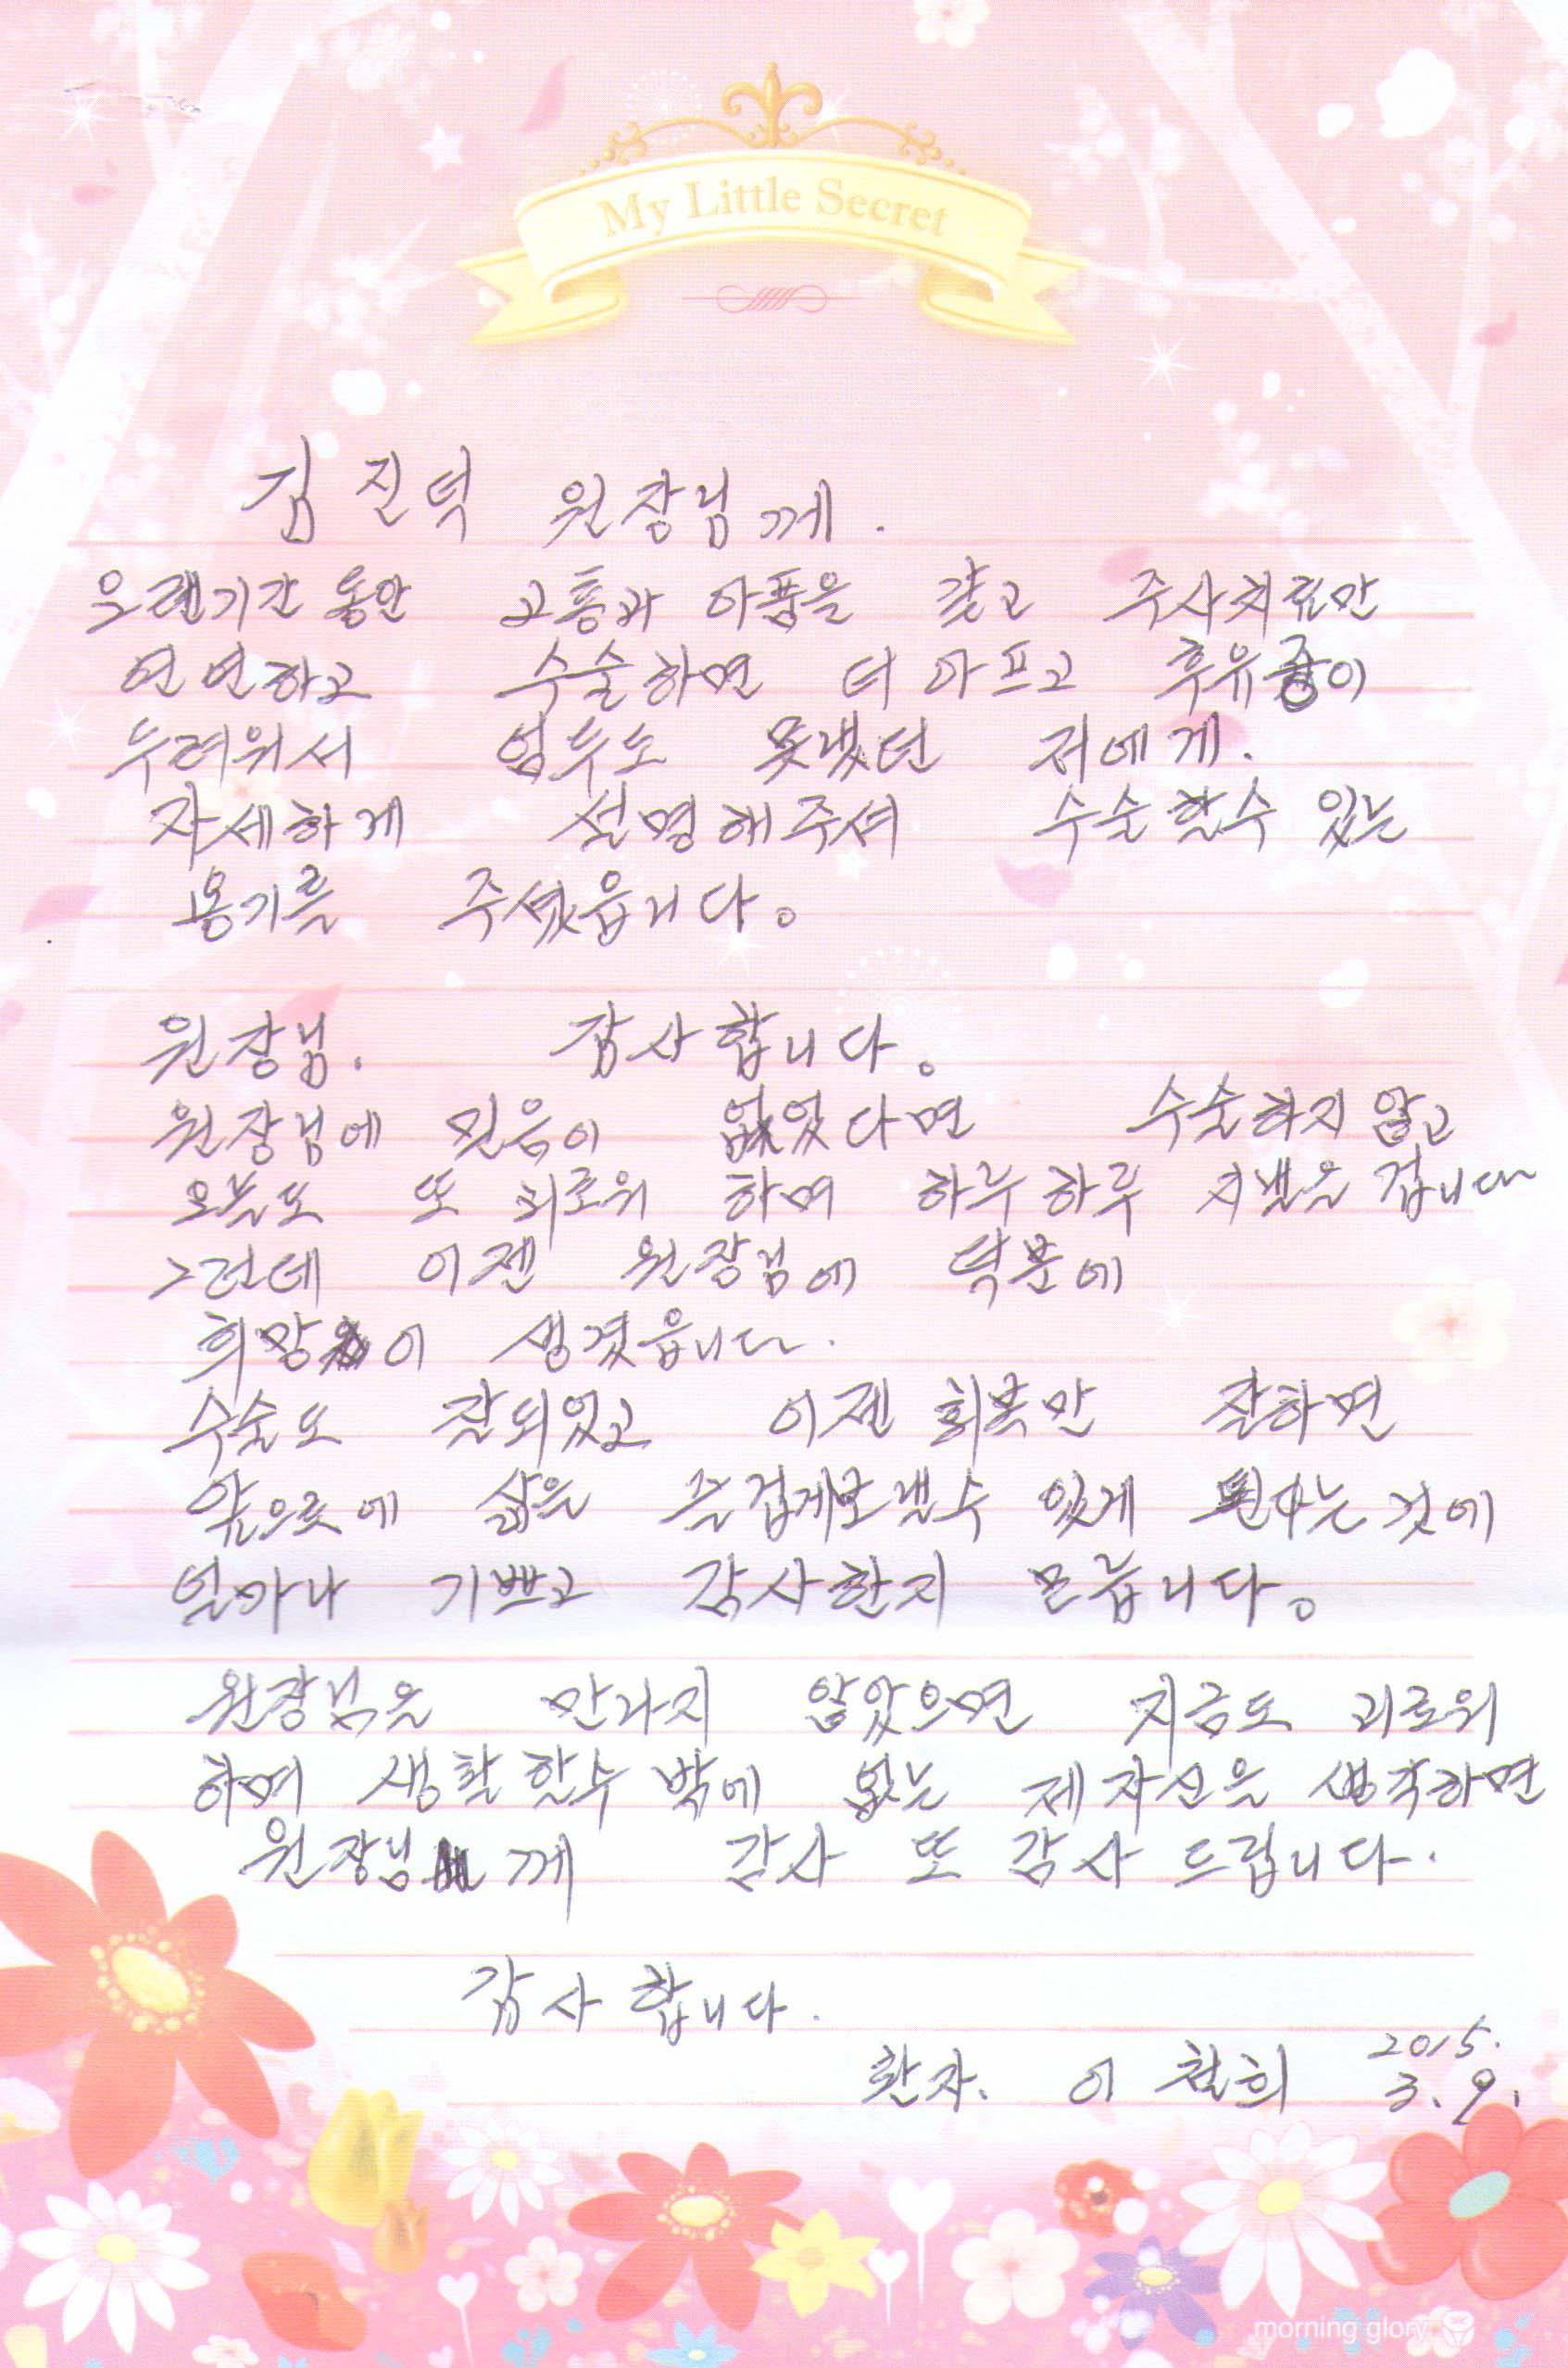 My Little Secret
김진덕 원장님께.
오랜기간 동안 고통과 아픔을 갖고 주사치료만
연연하고 수술하면 더 아프고 후유증이
두려워서 엄두도 못냈던 저에게.
자세하게 설명해주셔 수술할수 있는
용기를 주셨읍니다。
원장님. 감사합니다。
원장님에 믿음이 없었다면 수술하지 않고
오늘도 또 괴로워 하며 하루하루 지냈을 겁니다
그런데 이젠 원장님에 덕분에
희망이 생겼읍니다.
수술도 잘되었고 이젠 회복만 잘하면
앞으로에 삶을 즐겁게보낼수 있게 된다는 것에
얼마나 기쁘고 감사한지 모릅니다。
원장님을 만나지 않았으면 지금도 괴로워
하며 생활할수 밖에 없는 제자신을 생각하면
원장님께 감사 또 감사 드립니다.
감사합니다.
환자. 이철희 2015.
3. 9.
morning glory